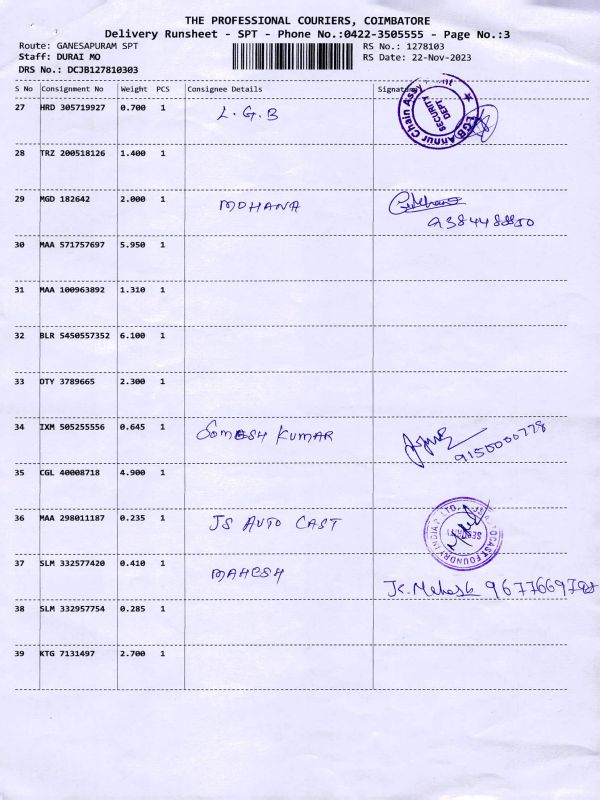 THE PROFESSIONAL COURIERS, COIMBATORE
Delivery Runsheet - SPT - Phone No.:0422-3505555 - Page No.:3
Route: GANESAPURAM SPT RS No.: 1278103
Staff: DURAI MO RS Date: 22-Nov-2023
DRS No.: DCJB127810303
S No Consignment No Weight PCS Consignee Details Signature
27 HRD 305719927 0.700 1 L.G.B LGB Annur Chain Ass SECURITY DEPT
28 TRZ 200518126 1.400 1
29 MGD 182642 2.000 1 MOHANA
30 MAA 571757697 5.950 1
31 MAA 100963892 1.310 1
32 BLR 5450557352 6.100 1
33 OTY 3789665 2.300 1
34 IXM 505255556 0.645 1 SOMESH KUMAR 9150000778
35 CGL 40008718 4.900 1
36 MAA 298011187 0.235 1 JS AUTO CAST JS AUTOCAST FOUNDRY INDIA P LTD.
37 SLM 332577420 0.410 1 MAHESH J.K. Mahesh
38 SLM 332957754 0.285 1
39 KTG 7131497 2.700 1